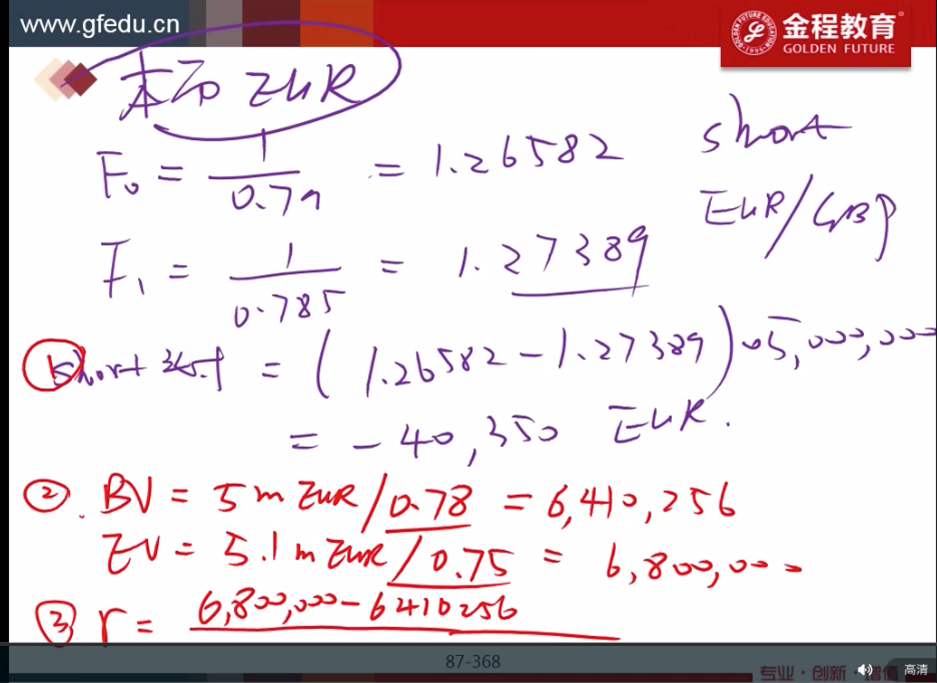 www.gfedu.cn
金程教育
GOLDEN FUTURE
本币 EUR
F₀ = 1/0.79 = 1.26582
short
EUR/GBP
F₁ = 1/0.785 = 1.27389
① short = (1.26582 - 1.27389) × 5,000,000
= -40,350 EUR.
② BV = 5m EUR/0.78 = 6,410,256
EV = 5.1m EUR/0.75 = 6,800,000
③ r = 6,800,000 - 6410256
87-368
专业·创新·增值
高清